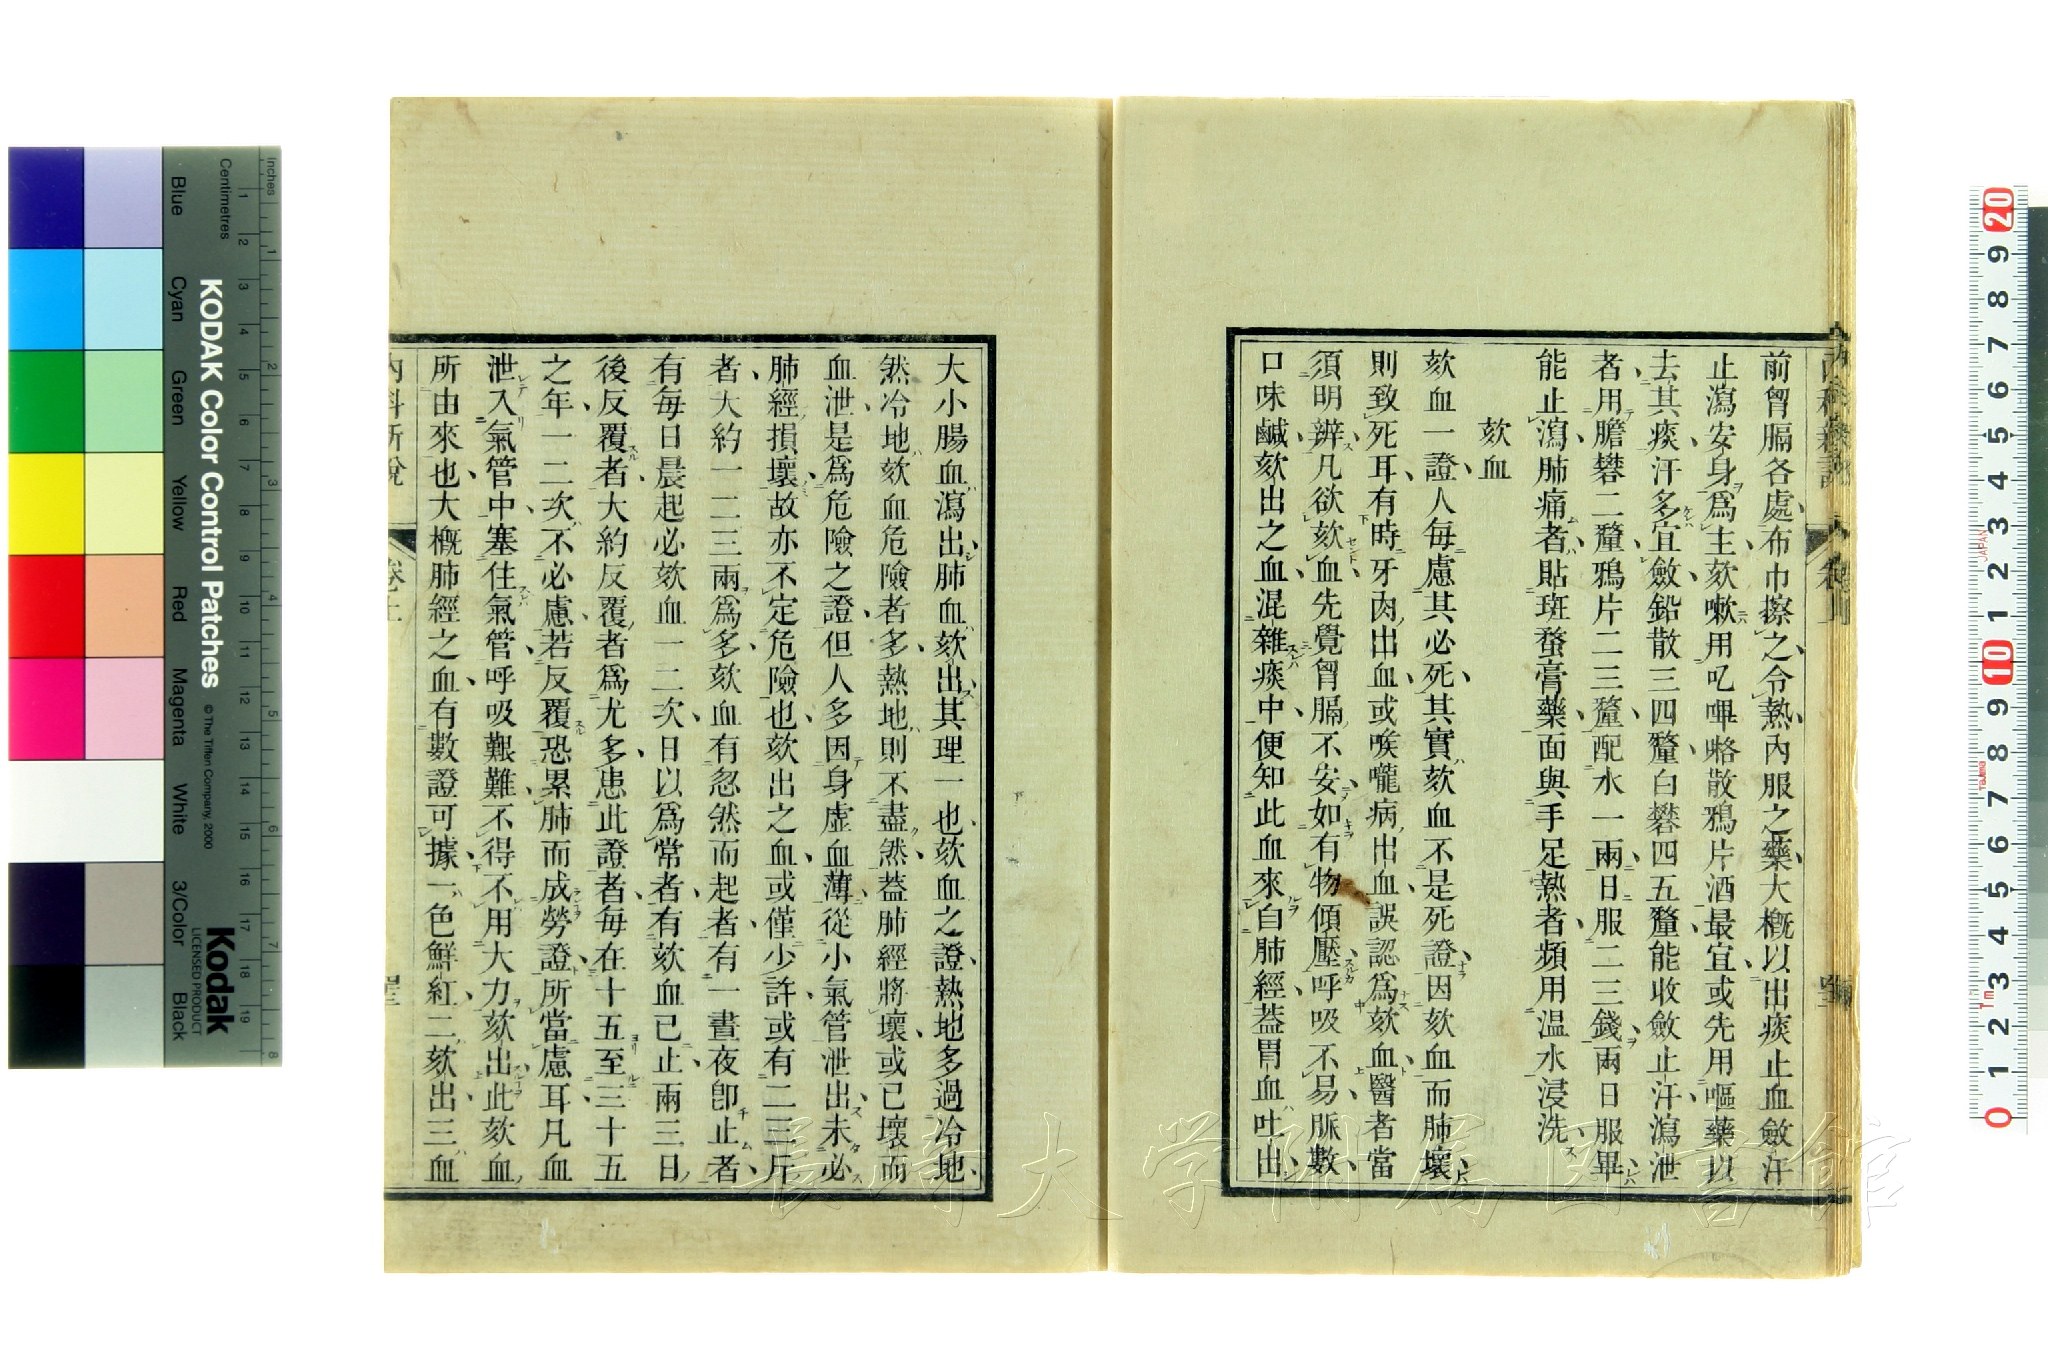 前胷膈各處布巾擦之令熱內服之藥大概以出痰止血斂汗
止瀉安身爲主欬嗽用叱嗶咯散鴉片酒最宜或先用嘔藥以
去其痰汗多宜斂鉛散三四釐白礬四五釐能收斂止汗瀉泄
者用膽礬二釐鴉片二三釐配水一兩日服二三錢兩日服畢
能止瀉肺痛者貼斑蝥膏藥面與手足熱者頻用温水浸洗
欬血
欬血一證人每慮其必死其實欬血不是死證因欬血而肺壞
則致死耳有時牙肉出血或喉嚨病出血誤認爲欬血醫者當
須明辨凡欲欬血先覺胷膈不安如有物傾壓呼吸不易脈數
口味鹹欬出之血混雜痰中便知此血來自肺經葢胃血吐出
大小腸血瀉出肺血欬出其理一也欬血之證熱地多過冷地
然冷地欬血危險者多熱地則不盡然葢肺經將壞或已壞而
血泄是爲危險之證但人多因身虛血薄從小氣管泄出未必
肺經損壞故亦不定危險也欬出之血或僅少許或有二三斤
者大約一二三兩爲多欬血有忽然而起者有一晝夜卽止者
有每日晨起必欬血一二次日以爲常者有欬血已止兩三日
後反覆者大約反覆者爲尤多患此證者每在十五至三十五
之年一二次不必慮若反覆恐累肺而成勞證所當慮耳凡血
泄入氣管中塞住氣管呼吸艱難不得不用大力欬出此欬血
所由來也大概肺經之血有數證可據一色鮮紅二欬出三血
內科新說
卷上
KODAK Color Control Patches
© The Tiffen Company, 2000
Kodak
LICENSED PRODUCT
Inches
Centimetres
Blue
Cyan
Green
Yellow
Red
Magenta
White
3/Color
Black
長崎大学附属図書館